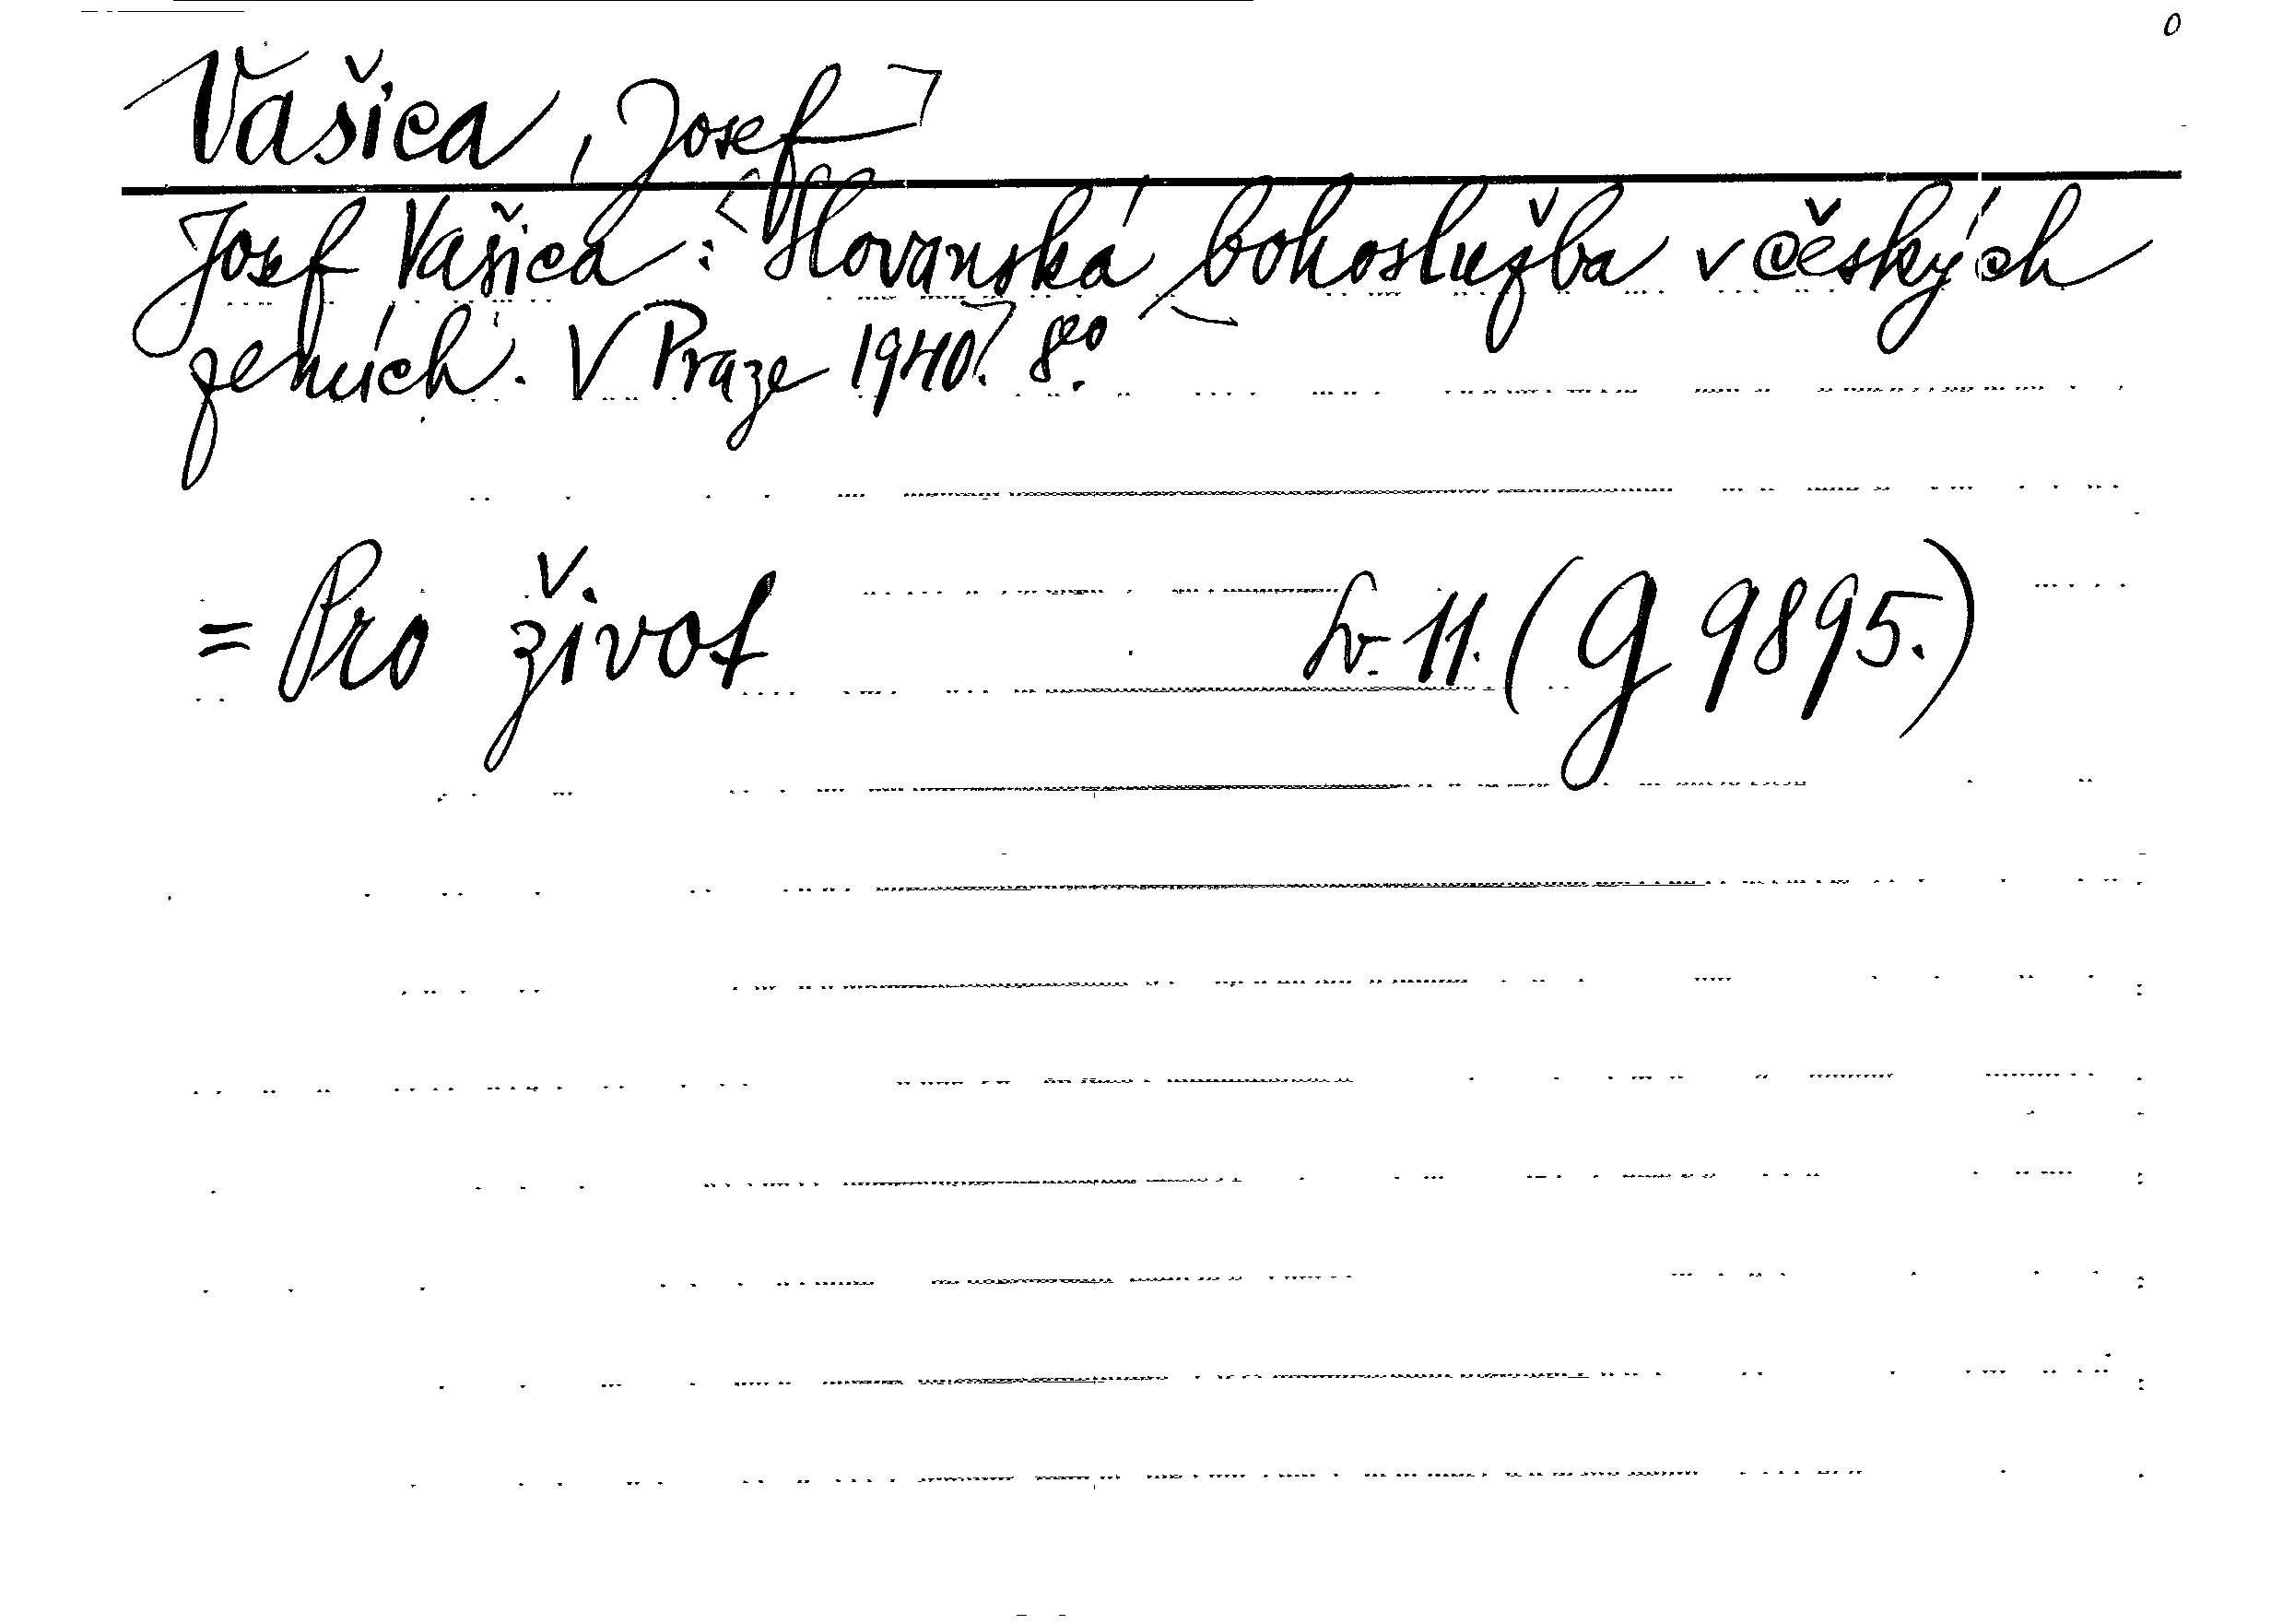 0
Vašica, Josef
Josef Vašica: Slovanská bohoslužba v českých
zemích. V Praze 1940. 8⁰.
= Pro život sv. 11. (G 9895.)